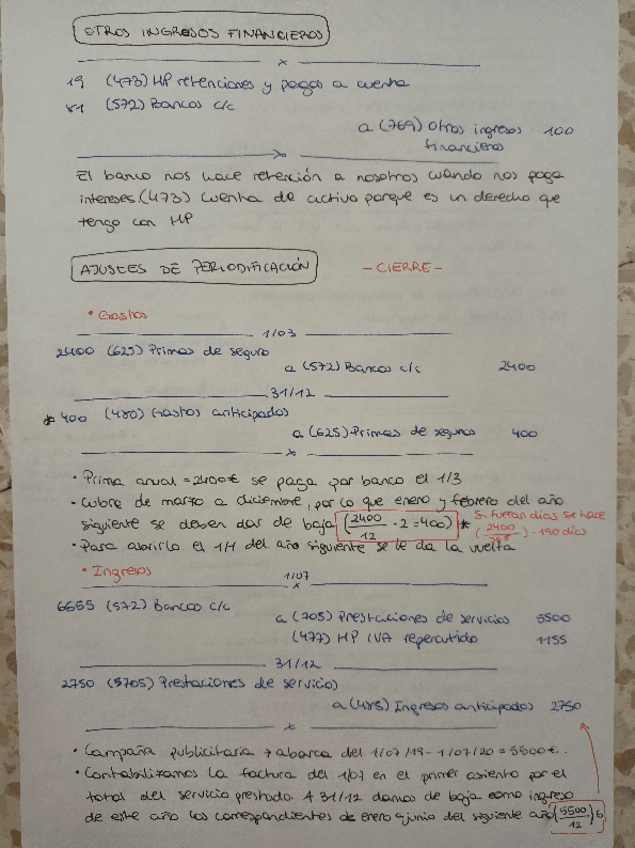 OTROS INGRESOS FINANCIEROS
x
19 (473) HP retenciones y pagos a cuenta
81 (572) Bancos c/c
a (769) Otros ingresos 100
financieros
x
El banco nos hace retención a nosotros cuando nos paga
intereses (473) cuenta de activo porque es un derecho que
tengo con HP
AJUSTES DE PERIODIFICACIÓN - CIERRE -
• Gastos
1/03
2400 (625) Primas de seguro
a (572) Bancos c/c 2400
31/12
* 400 (480) Gastos anticipados
a (625) Primas de seguros 400
x
• Prima anual = 2400€ se paga por banco el 1/3
• Cubre de marzo a diciembre, por lo que enero y febrero del año
siguiente se deben dar de baja (2400/12 · 2 = 400) * Si fueran días se hace
(2400/365) · 190 días
• Para abrirlo el 1/1 del año siguiente se le da la vuelta
• Ingresos
1/07
x
6655 (572) Bancos c/c
a (705) Prestaciones de servicios 5500
(477) HP IVA repercutido 1155
31/12
2750 (5705) Prestaciones de servicios
a (485) Ingresos anticipados 2750
x
• Campaña publicitaria → abarca del 1/07/19 - 1/07/20 = 5500€.
• Contabilizamos la factura del 1/07 en el primer asiento por el
total del servicio prestado. A 31/12 damos de baja como ingreso
de este año los correspondientes de enero a junio del siguiente año (5500/12) · 6